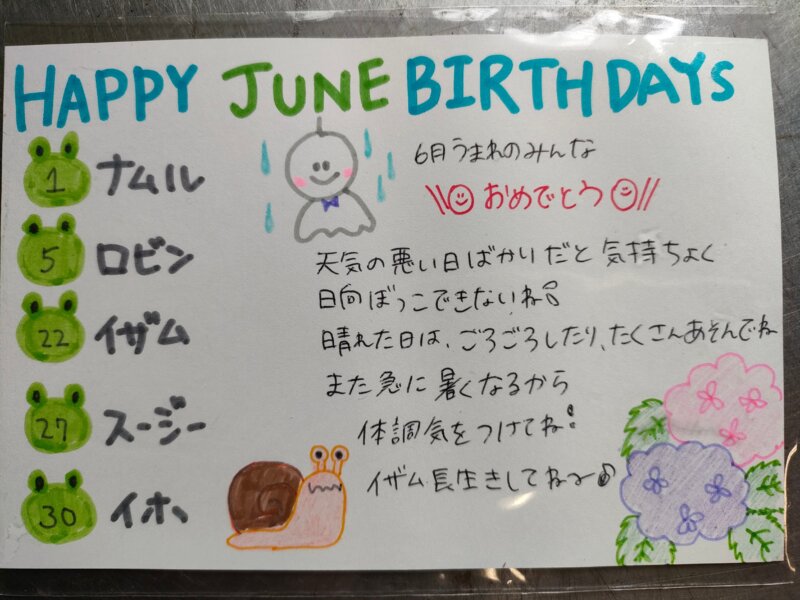 HAPPY JUNE BIRTHDAYS
1 ナムル
5 ロビン
22 イザム
27 スージー
30 イホ
6月うまれのみんな
\\おめでとう//
天気の悪い日ばかりだと気持ちよく
日向ぼっこできないね!
晴れた日は、ごろごろしたり、たくさんあそんでね
また急に暑くなるから
体調気をつけてね!
イザム長生きしてね〜♪